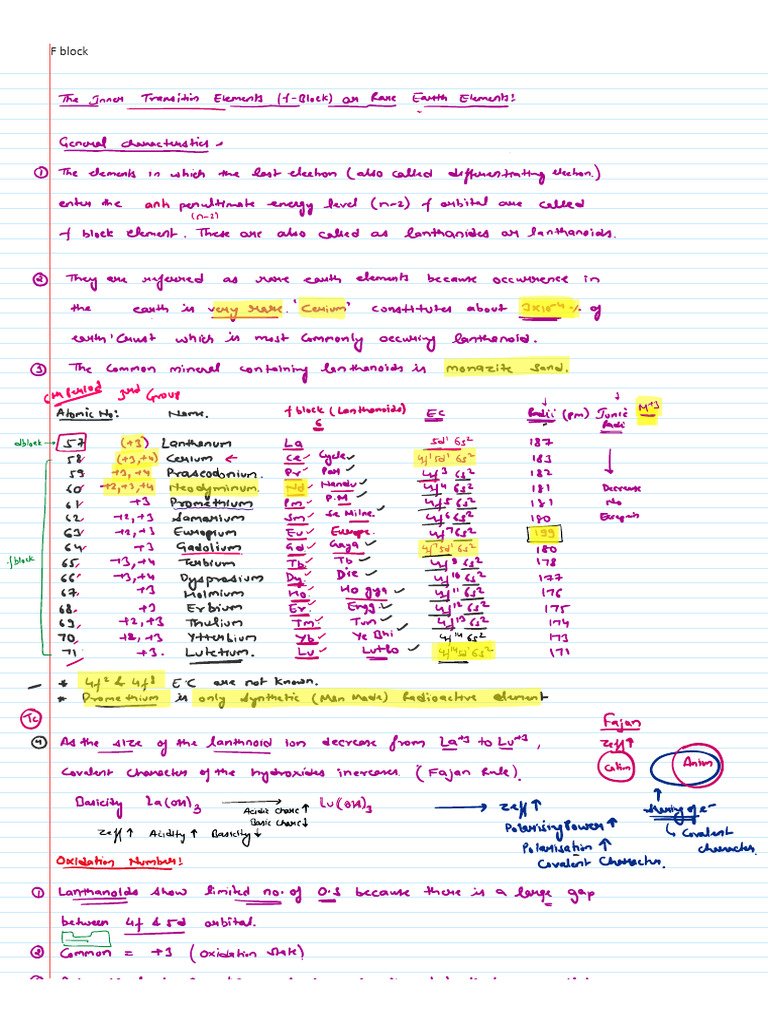 F block
The Inner Transition Elements (f-Block) or Rare Earth Elements:
General characteristics -
① The elements in which the last electron (also called differentiating electron.)
enter the anti penultimate energy level (n-2) f orbital are called
(n-2)
f block element. These are also called as lanthanides or lanthanoids.
② They are referred as rare earth elements because occurrence in
the earth is very rare. 'Cerium' constitutes about 3×10⁻⁴% of
earth' Crust which is most commonly occuring lanthanoid.
③ The common mineral containing lanthanoids is monazite sand.
6th Period 3rd Group
Atomic No: Name. f block (Lanthanoids) EC Radii (pm) Ionic Radii M+3
6
dblock → 57 (+3) Lanthanum La 5d¹ 6s² 187
58 (+3,+4) Cerium ← Ce Cycle 4f¹ 5d¹ 6s² 183
59 +3, +4 Prascodonium. Pr Par 4f³ 6s² 182
60 +2,+3,+4 Neodyminum. Nd Nandu 4f⁴ 6s² 181 Decrease
61 +3 Promethium Pm P.M 4f⁵ 6s² 181 No
62 +2,+3 Samarium Sm Se Milne. 4f⁶ 6s² 180
63 +2,+3 Europium Eu Europe. 4f⁷ 6s² 199
64 +3 Gadolium Gd Gaya 4f⁷ 5d¹ 6s² 180
fblock
65 +3, +4 Terbium Tb Tb 4f⁹ 6s² 178
66 +3,+4 Dysprasium Dy Die 4f¹⁰ 6s² 177
67 +3 Holmium Ho Ho gya 4f¹¹ 6s² 176
68 +3 Erbium Er 4f¹² 6s² 175
69 +2,+3 Thulium Tm Tum 4f¹³ 6s² 174
70 +2,+3 Ytterbium Yb Ye Bhi 4f¹⁴ 6s² 173
71 +3. Lutetium. Lu 4f¹⁴ 5d¹ 6s² 171
* 4f² & 4f⁸ EC are not known.
* Promethium is only synthetic (Man Made) Radioactive element
Tc
Fajan
④ As the size of the lanthnoid ion decrease from La⁺³ to Lu⁺³,
Zeff↑
Cation Anion
Covalent Character of the hydroxides increases. (Fajan Rule).
Basicity La(OH)₃ → Lu(OH)₃ → Zeff ↑
Acidic Charc ↑
Basic Charc ↓
Sharing of e⁻
Zeff ↑ Acidity ↑ Basicity ↓
Polarising Power ↑
Polarisation ↑
Covalent Character.
↳ Covalent character.
Oxidation Number:
① Lanthanoids show limited no. of O.S because there is a large gap
between 4f & 5d orbital.
② Common = +3 (Oxidation State)